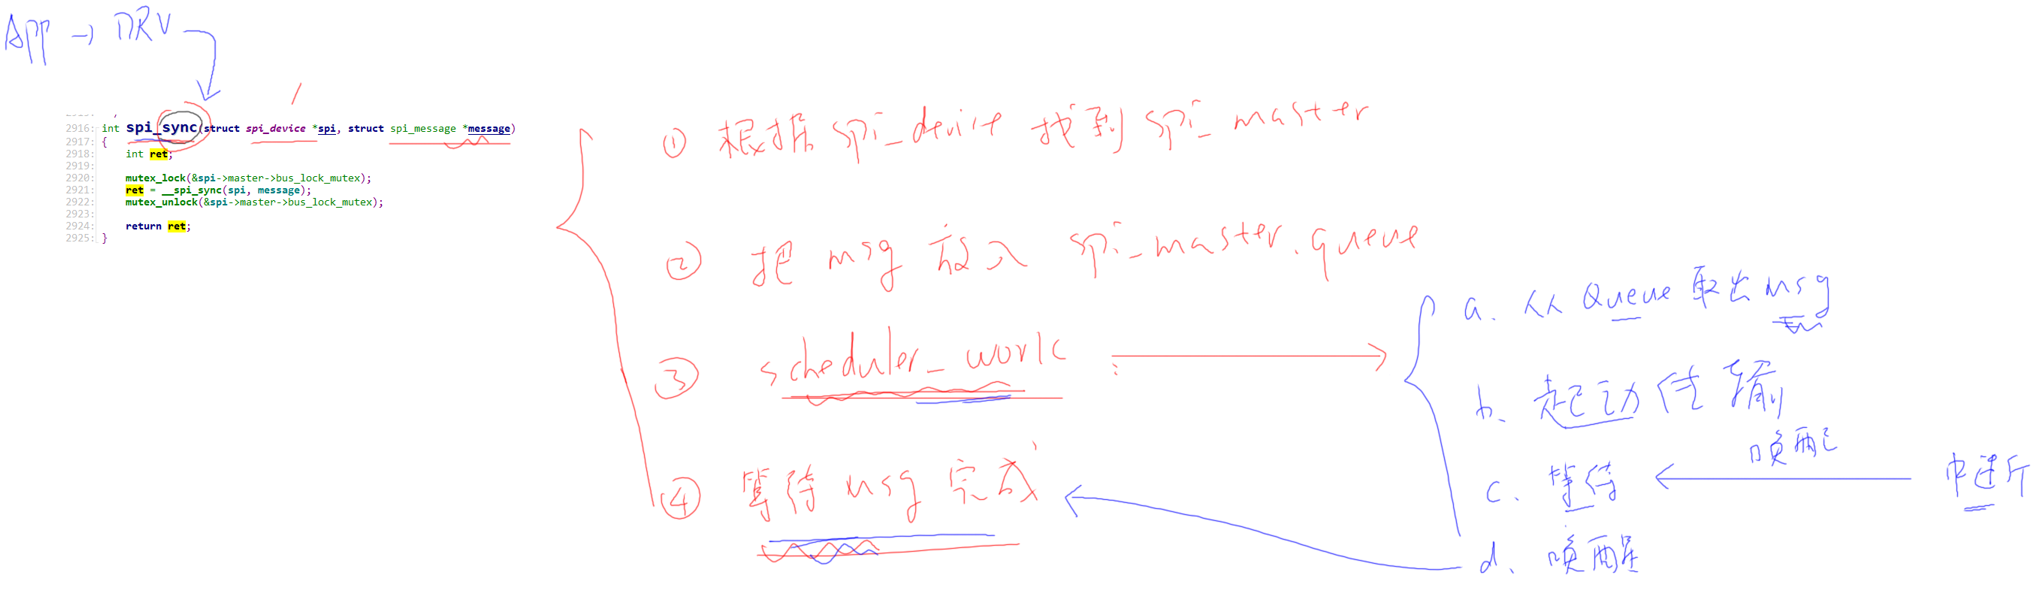 APP → DRV
2916: int spi_sync(struct spi_device *spi, struct spi_message *message)
2917: {
2918: int ret;
2919:
2920: mutex_lock(&spi->master->bus_lock_mutex);
2921: ret = __spi_sync(spi, message);
2922: mutex_unlock(&spi->master->bus_lock_mutex);
2923:
2924: return ret;
2925: }
① 根据 spi_device 找到 spi_master
② 把 msg 放入 spi_master.queue
③ scheduler_work
④ 等待 msg 完成
a. 从 Queue 取出 msg
b. 起动传输
c. 等待
唤醒
中断
d. 唤醒